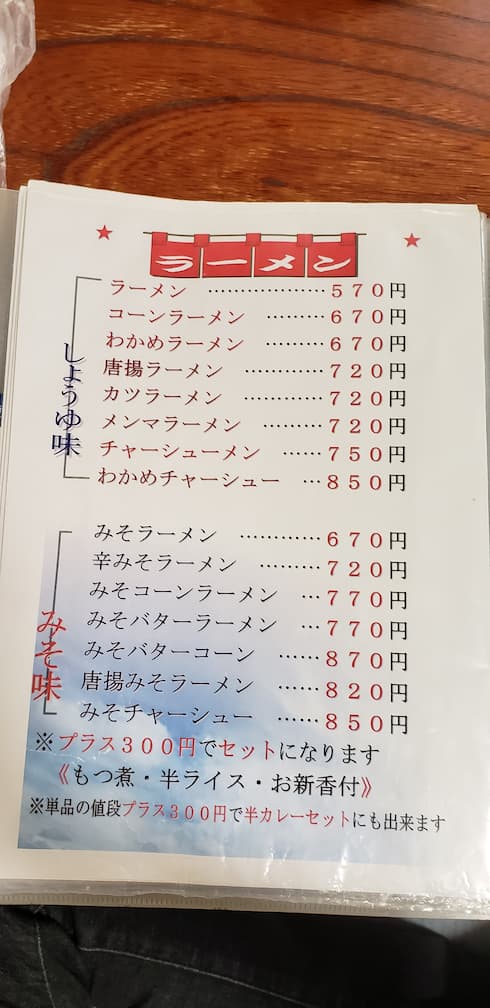 ラーメン
しょうゆ味
ラーメン ………………570円
コーンラーメン …………670円
わかめラーメン …………670円
唐揚ラーメン …………720円
カツラーメン …………720円
メンマラーメン ………720円
チャーシューメン ……750円
わかめチャーシュー …850円
みそ味
みそラーメン …………670円
辛みそラーメン ………720円
みそコーンラーメン …770円
みそバターラーメン …770円
みそバターコーン ……870円
唐揚みそラーメン ……820円
みそチャーシュー ……850円
※プラス300円でセットになります
《もつ煮・半ライス・お新香付》
※単品の値段プラス300円で半カレーセットにも出来ます